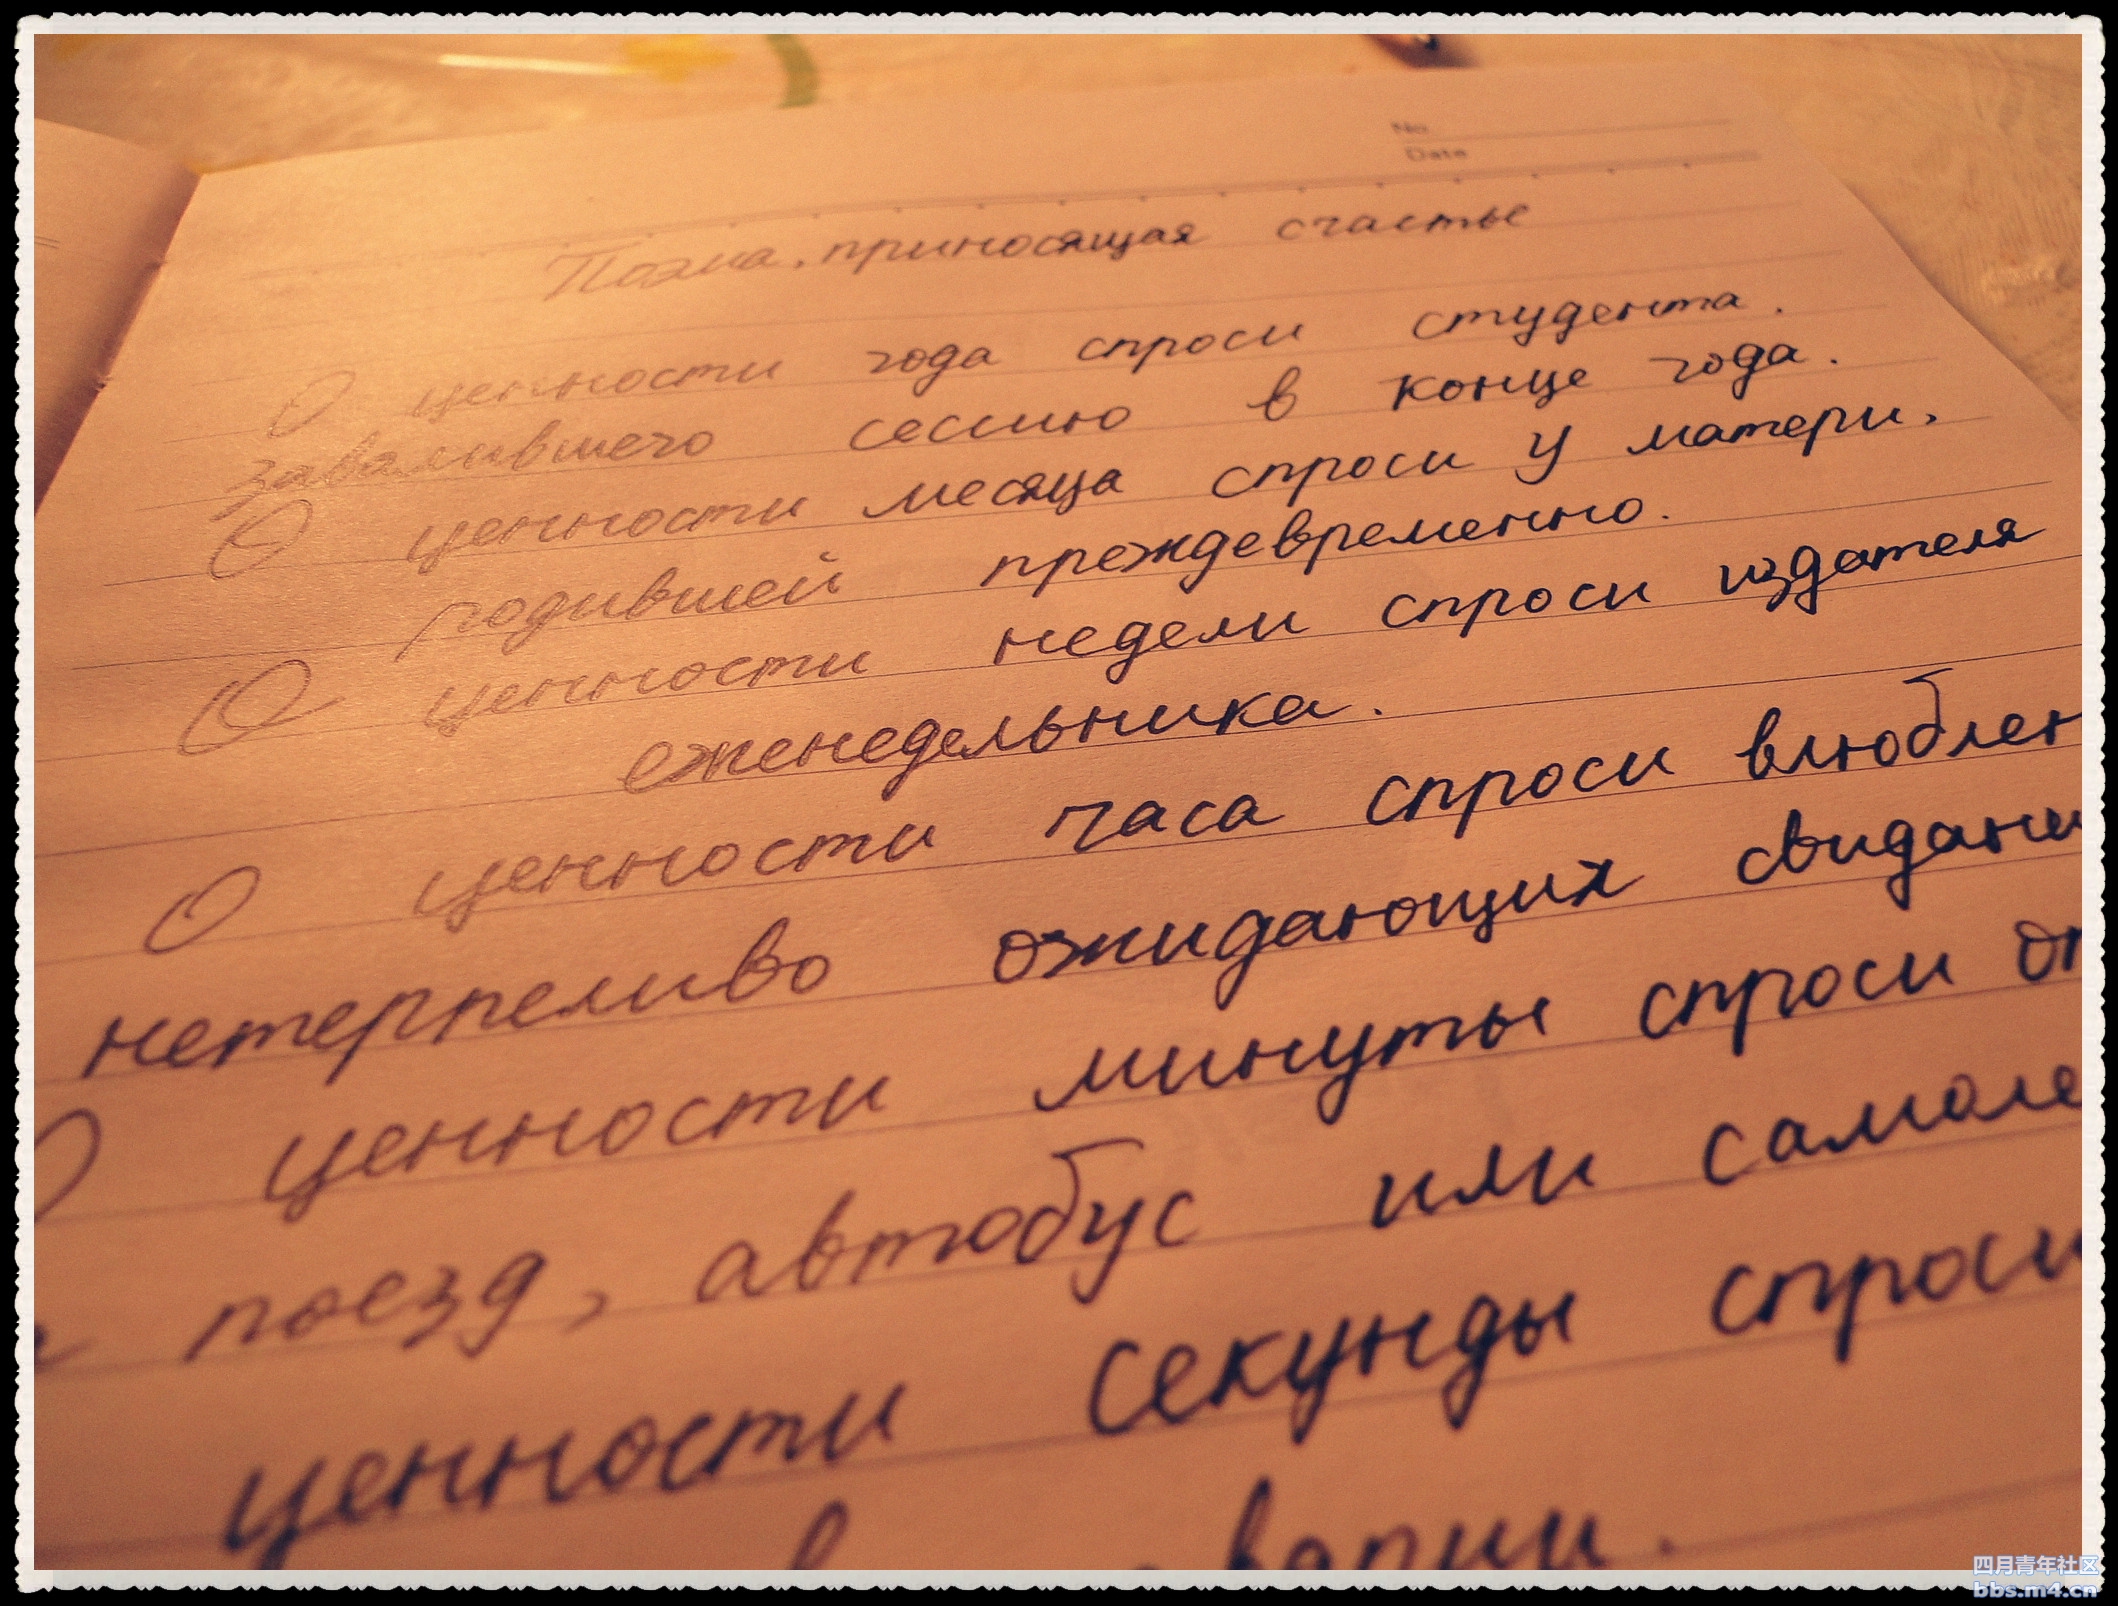 No
Date
Поэма, приносящая счастье
О ценности года спроси студента.
завалившего сессию в конце года.
О ценности месяца спроси у матери,
родившей преждевременно.
О ценности недели спроси издателя
еженедельника.
О ценности часа спроси влюблен
нетерпеливо ожидающих свидани
О ценности минуты спроси оп
поезд, автобус или самоле
ценности секунды спроси
四月青年社区
bbs.m4.cn